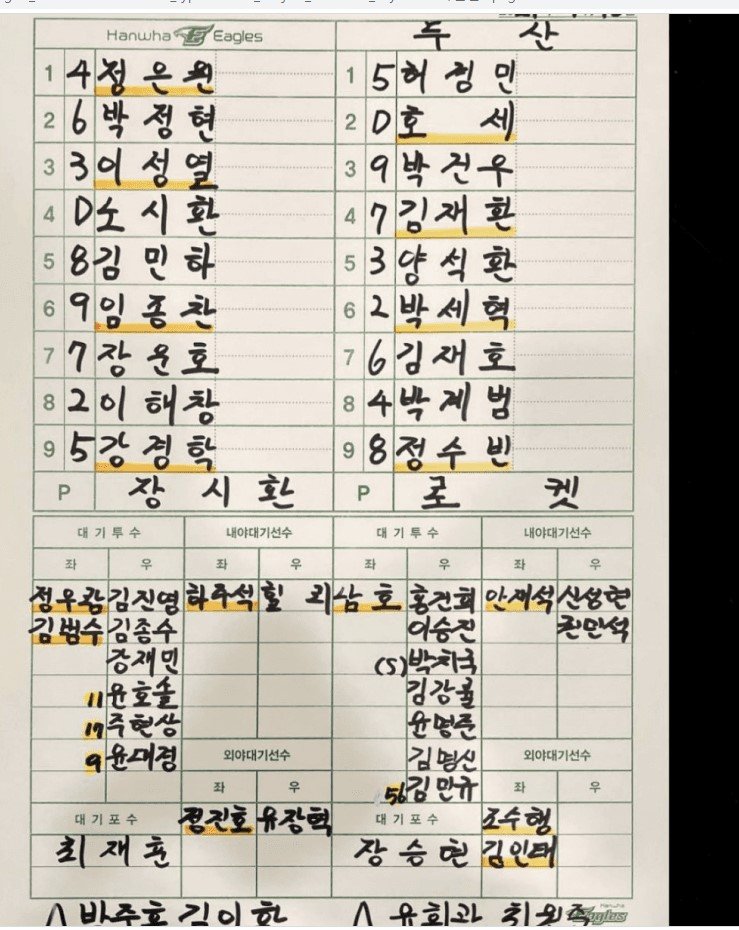 Hanwha Eagles
두 산
1 4 정은원
2 6 박정현
3 3 이성열
4 D 노시환
5 8 김민하
6 9 임종찬
7 7 장운호
8 2 이해창
9 5 강경학
P 장시환
1 5 허경민
2 D 호세
3 9 박건우
4 7 김재환
5 3 양석환
6 2 박세혁
7 6 김재호
8 4 박계범
9 8 정수빈
P 로켓
대기투수 내야대기선수 대기투수 내야대기선수
좌 우 좌 우 좌 우 좌 우
정우람 김진영 하주석 힐리 남호 홍건희 안재석 신성현
김범수 김종수 이승진 권민석
강재민 (S) 박치국
11 윤호솔 김강률
17 주현상 윤명준
9 윤대경 외야대기선수 김명신 외야대기선수
좌 우 56 김민규 좌 우
대기포수 정진호 유장혁 대기포수 조수행
최재훈 장승현 김인태
박주홍 김이환 유희관
Hanwha Eagles